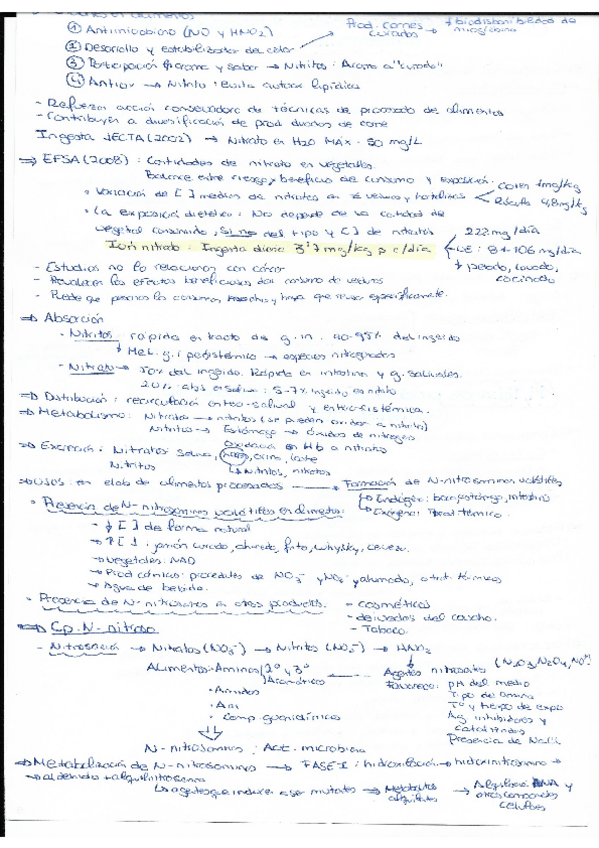 ① Antimicrobiano (NO y HNO2) → Prod. carnes curados
② Desarrollo y estabilizador del color
③ Participación aroma y sabor → Nitritos: Aroma a "curado"
④ Antiox → Nitrito: Evita autox lipídica
- Refuerzan acción conservadora de técnicas de procesado de alimentos
- Contribuyen a diversificación de prod
Ingesta JECFA (2002) → Nitrato en H2O MAX. 50 mg/L
⇒ EFSA (2008): Cantidades de nitrato en vegetales.
Balance entre riesgo y beneficio de consumo y exposición.
• Variación de [ ] medias de nitratos en verduras y hortalizas 1mg/kg
Rúcula 4,8mg/kg
• La exposición dietética: No depende de la cantidad de
vegetal consumido, Si no del tipo y [ ] de nitratos
222 mg/día
Ión nitrato: Ingesta diaria 3'7 mg/kg p.c/día
↓ pelado, lavado, cocinado
- Estudios no lo relacionan con cáncer
- Prevalecen los efectos beneficiosos del consumo de verduras
⇒ Absorción
• Nitritos rápida en tracto de g.in. 90-95% del ingerido
↳ Met. g.i presistémico → especies nitrogenadas
- Nitrato → del ingerido. Rápido en intestino y g. salivales.
5-7% ingerido es nitrito
⇒ Distribución: recirculación entero-salival y entero-sistémica.
⇒ Metabolismo: Nitratos → nitritos (se pueden oxidar a nitratos)
Nitritos → Estómago → óxidos de nitrógeno
Oxidación en Hb a nitratos
⇒ Excreción: Nitratos saliva, orina, leche
Nitritos ↳ Nitritos, nitratos
⇒ Usos: en elab de alimentos procesados → Formación de N-nitrosaminas volátiles
↳ Endógena: boca, estómago, intestino
↳ Exógena: Prod. térmico
• Presencia de N-nitrosaminas volátiles en alimentos:
- ↓ [ ] de forma natural
→ ↑ [ ]: jamón curado, ahumado, frito, whysky, cerveza.
→ Vegetales: NAD
→ Prod cárnicos: procedentes de NO3⁻ y NO2⁻ y ahumado, térmicos
→ Agua de bebida.
• Presencia de N-nitrosaminas en otros productos. - cosméticos
- derivados del caucho.
- Tabaco.
⇒ Cp. N-nitroso
- Nitrosación → Nitratos (NO3⁻) → Nitritos (NO2⁻) → HNO2
Alimentos: Aminas 2º y 3º ← Agentes nitrosantes (N2O3, N2O4, NO⁺)
Aromáticos Favorece: pH del medio
• Amidas Tipo de amina
Tº y tiempo de expo
• Comp. guanidínicos Ag inhibidores y
catalizadores
Presencia de NaCl
N-nitrosaminas: Act. microbiana
⇒ Metabolización de N-nitrosaminas → FASE I: hidroxilación → hidroxinitrosamina →
→ aldehído + alquilnitrosamina
↳ agentes que inducen a ser mutados → Metabolitos alquilantes → Alquilación DNA y
otros componentes
celulares